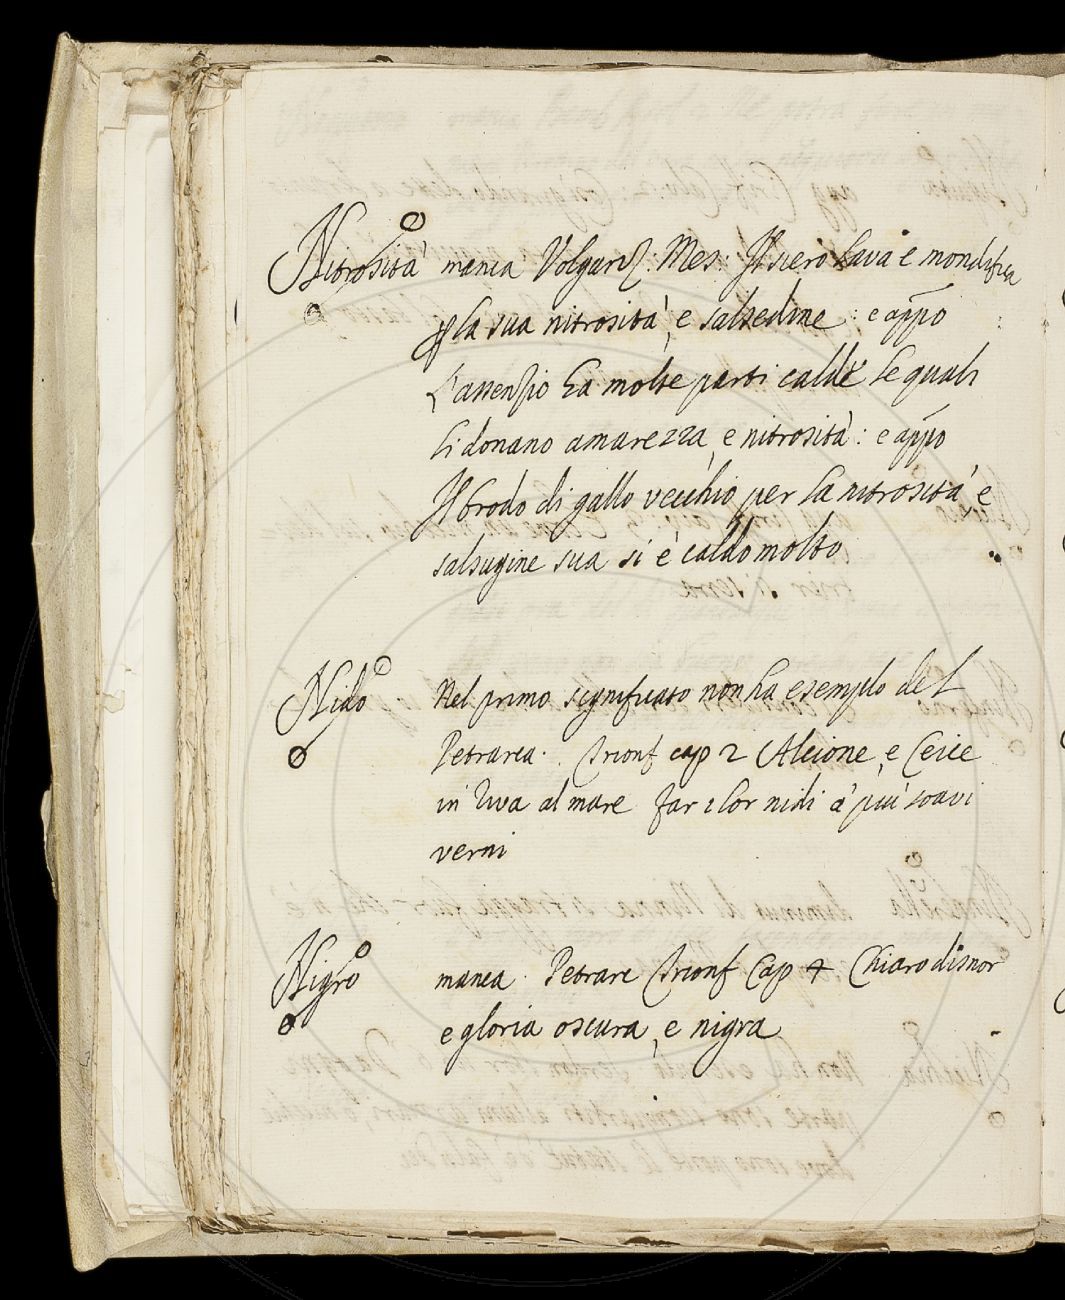 Nitrosità manca Volgarz. Mes. Il siero lava e mondifica
p la sua nitrosità, e salsedine : e appo
L'assenzio ha molte parti calde le quali
li donano amarezza, e nitrosità : e appo
Il brodo di gallo vecchio per la nitrosità, e
salsugine sua si è caldo molto
Nido Nel primo significato non ha esempio del
Petrarca. Trionf cap 2 Alcione, e Ceice
in riva al mare far i lor nidi a' più soavi
verni
Nigro manca. Petrarc Trionf Cap 4 Chiaro disnor
e gloria oscura, e nigra